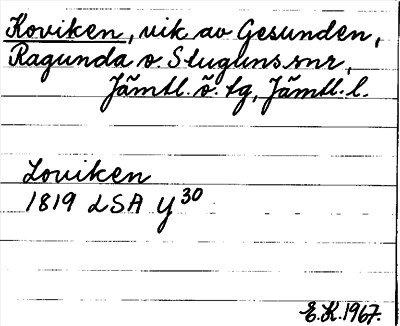 Koviken, vik av Gesunden,
Ragunda o. Stuguns snr,
Jämtl. ö. tg, Jämtl. l.
Loviken
1819 LSA Y30
E.K. 1967.